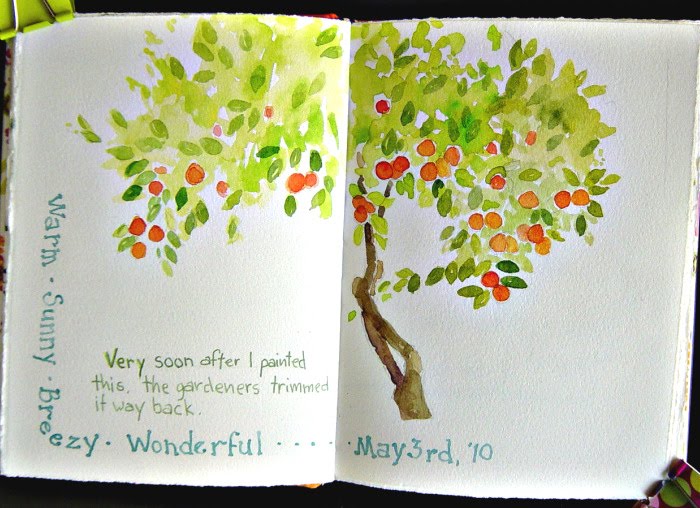 Very soon after I painted
this, the gardeners trimmed
it way back.
Warm · Sunny · Breezy · Wonderful · · · · · May 3rd, '10